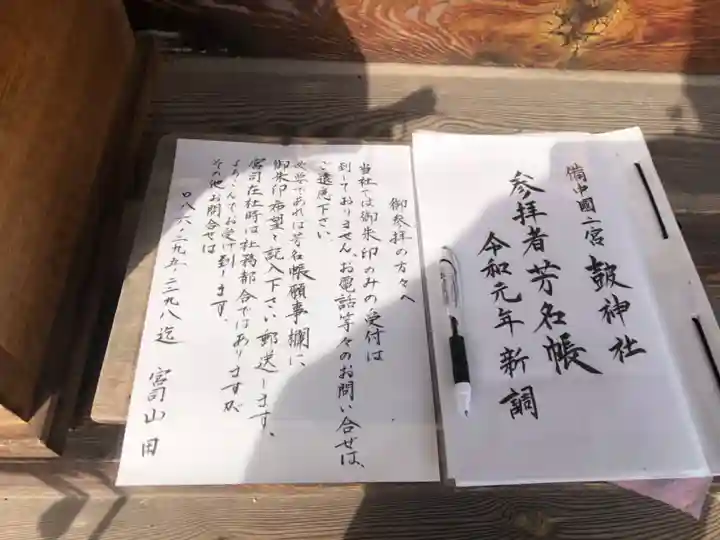 備中國二宮 鼓神社
参拝者芳名帳
令和元年新調
御参拝の方々へ
当社では御朱印のみの受付は
到しておりません、お電話等々のお問い合せは、
ご遠慮下さい
必要であれば芳名帳願事欄に
御朱印希望と記入下さい郵送します。
宮司在社時は社務都合ではありますが
よろこんでお受け到します。
その他お問合せは
〇八六-二九五-二二九八迄 宮司山田